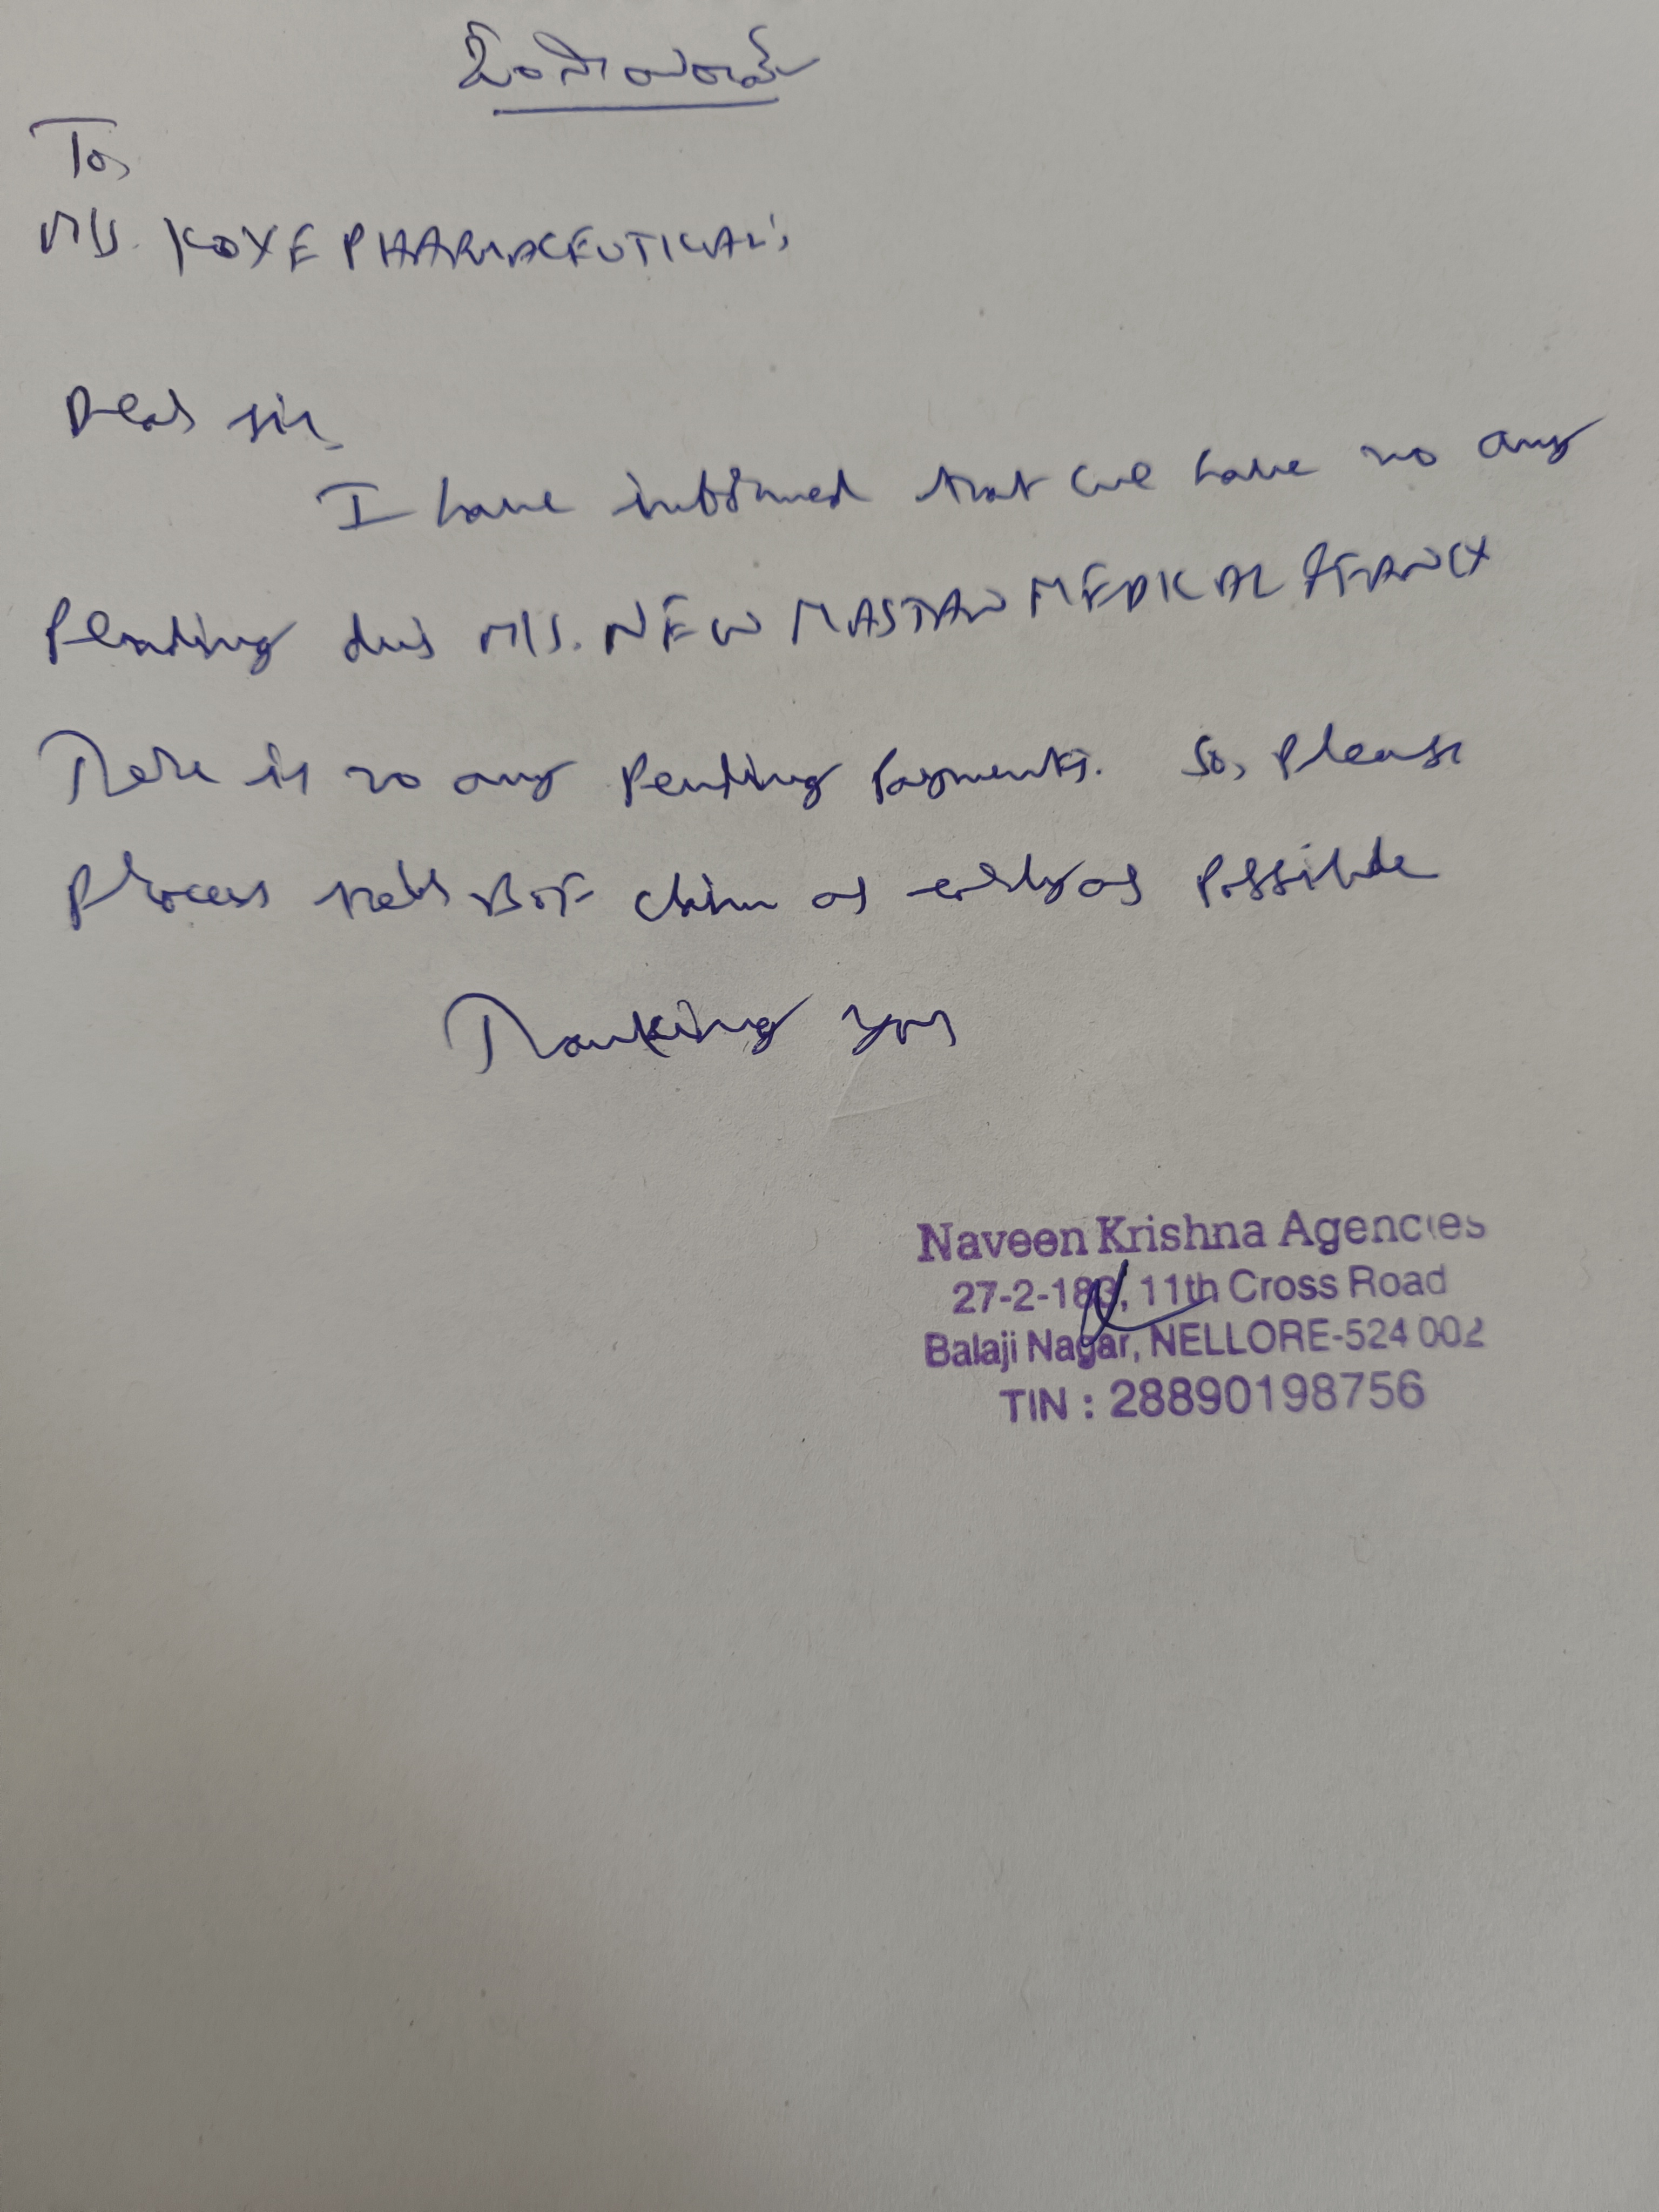 ఓం సాయిరామ్
To,
M/s. KOYE PHARMACEUTICAL's
Dear sir,
I have informed that we have no any
Pending dus M/s. NEW MASTAN MEDICAL AGENCY
There is no any Pending Payments. So, Please
Process their claim as early as Possible
Thanking you
Naveen Krishna Agencies
27-2-183, 11th Cross Road
Balaji Nagar, NELLORE-524 002
TIN : 28890198756